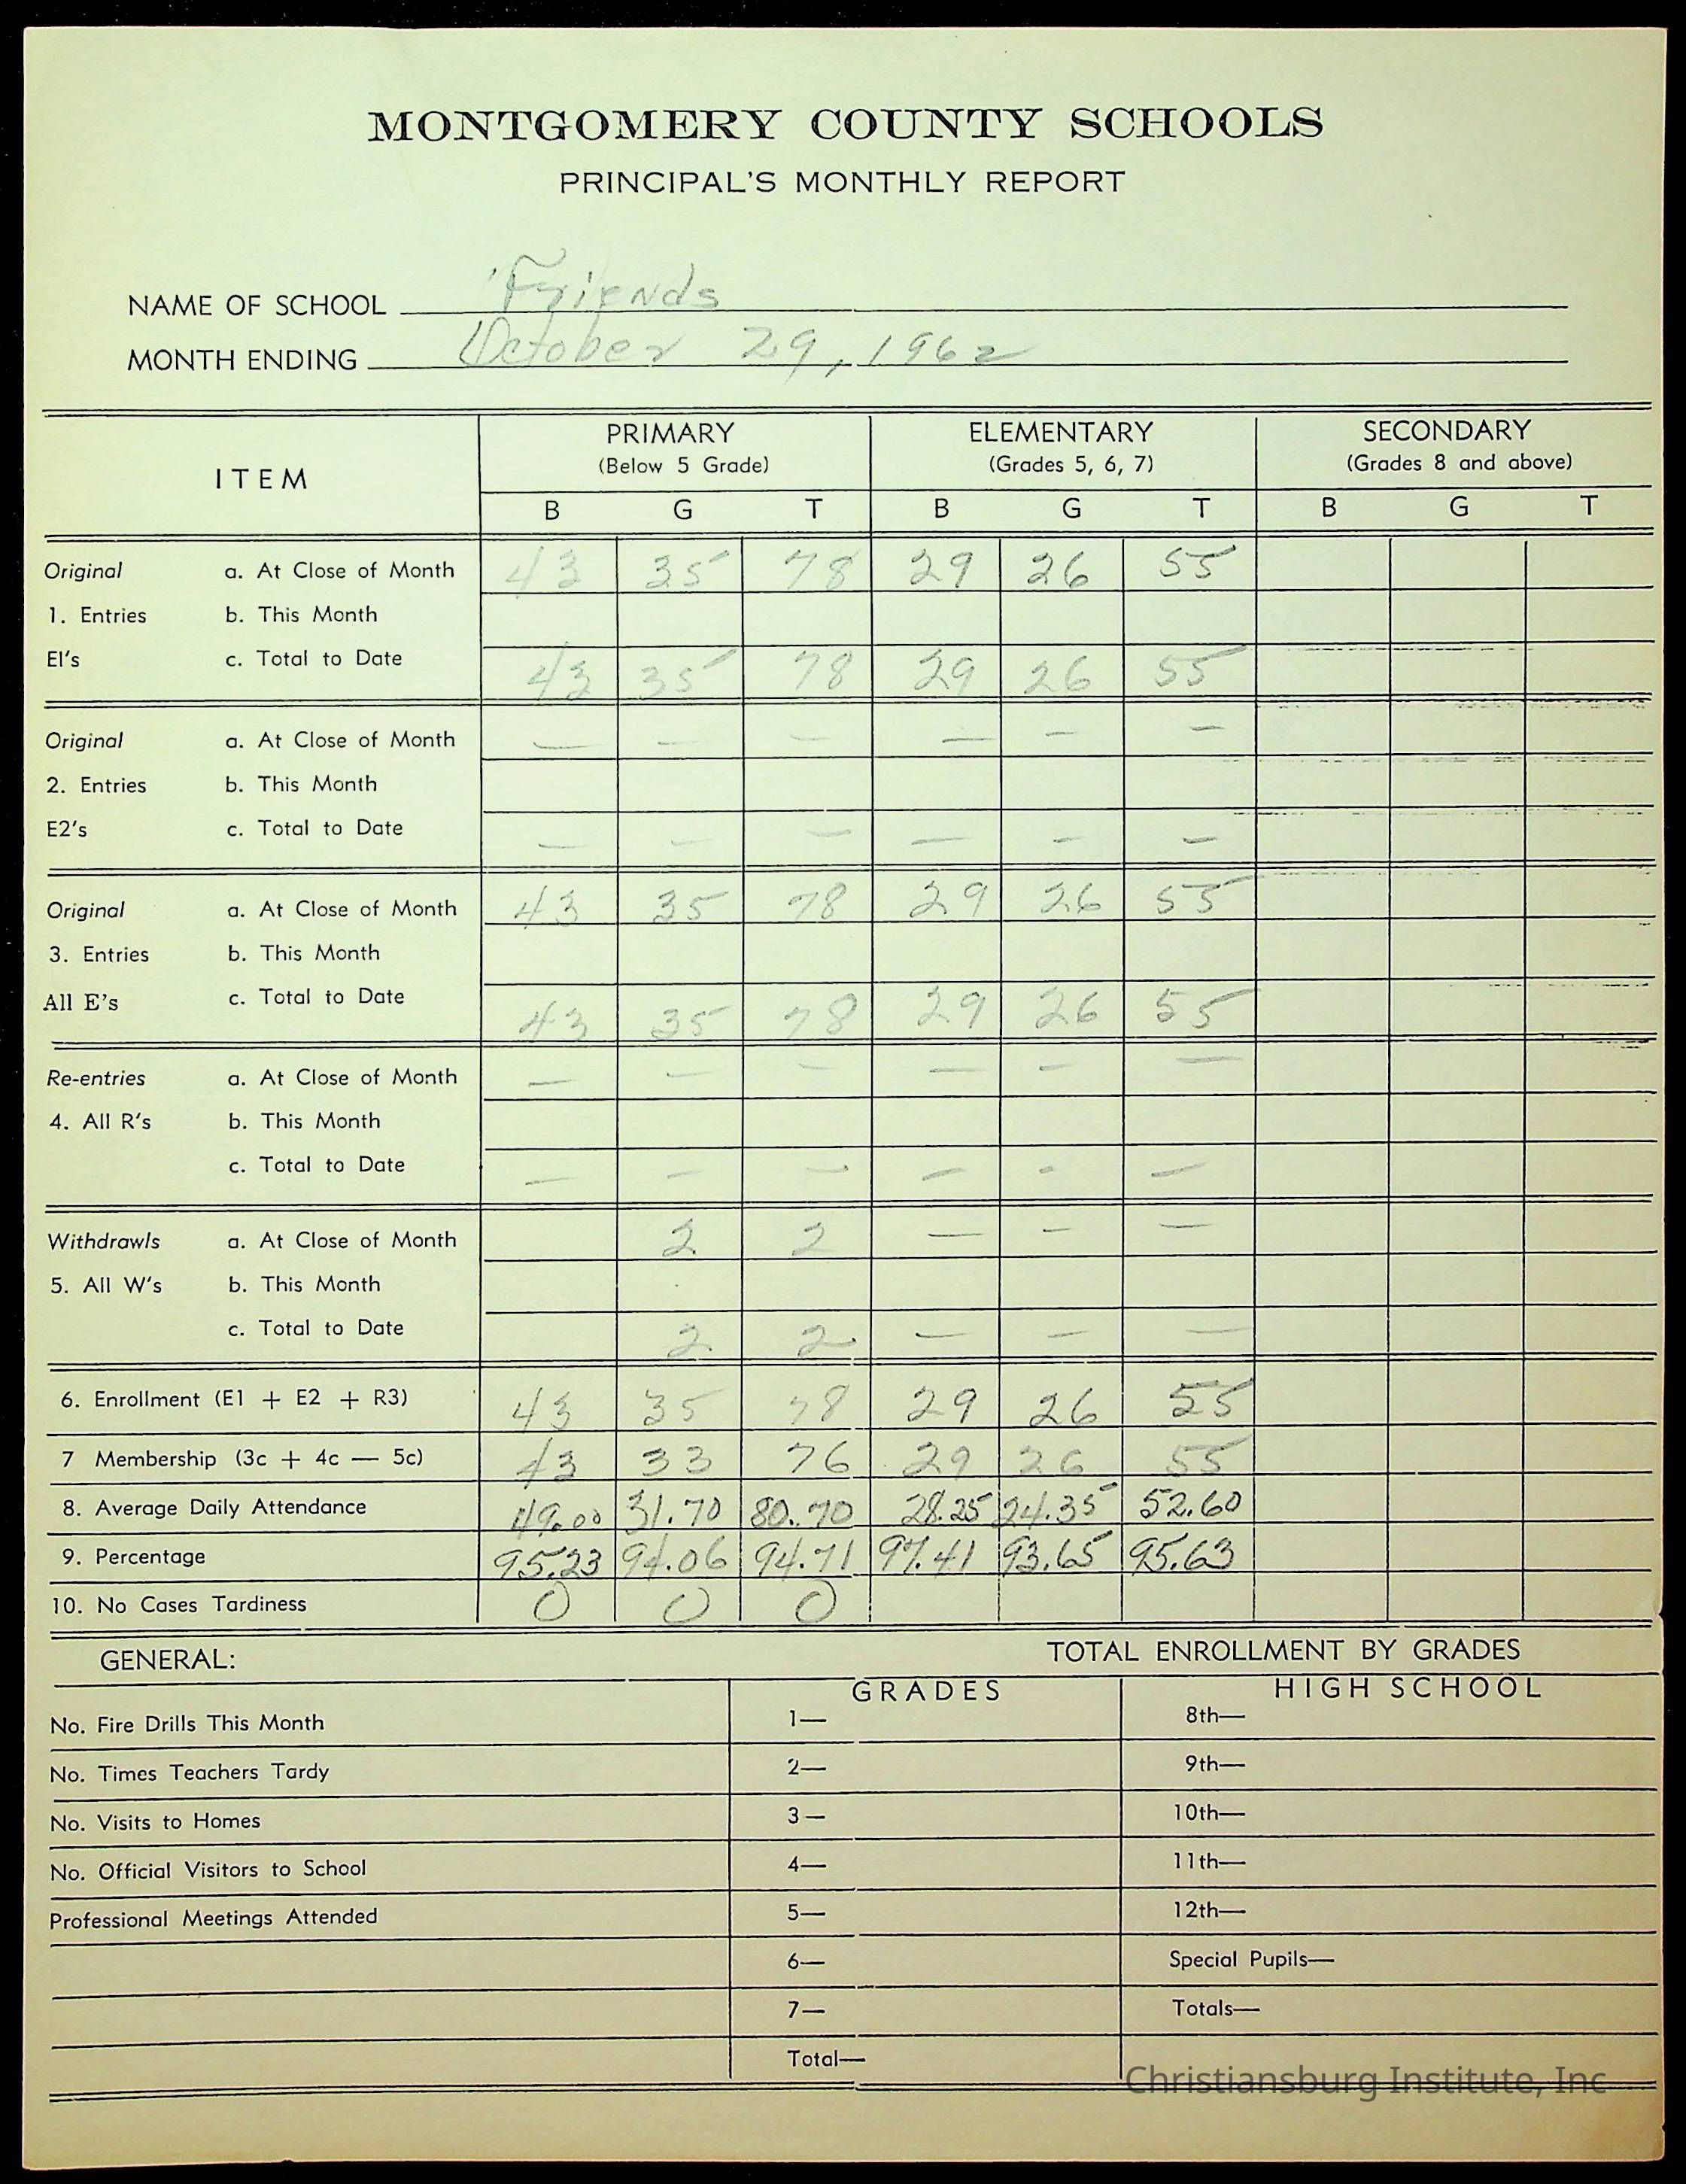 MONTGOMERY COUNTY SCHOOLS
PRINCIPAL'S MONTHLY REPORT
NAME OF SCHOOL Friends
MONTH ENDING October 29, 1962
ITEM PRIMARY (Below 5 Grade) ELEMENTARY (Grades 5, 6, 7) SECONDARY (Grades 8 and above)
B G T B G T B G T
Original a. At Close of Month 43 35 78 29 26 55
1. Entries b. This Month
El's c. Total to Date 43 35 78 29 26 55
Original a. At Close of Month — — — — — —
2. Entries b. This Month
E2's c. Total to Date — — — — — —
Original a. At Close of Month 43 35 78 29 26 55
3. Entries b. This Month
All E's c. Total to Date 43 35 78 29 26 55
Re-entries a. At Close of Month — — — — — —
4. All R's b. This Month
c. Total to Date — — — — — —
Withdrawls a. At Close of Month 2 2 — — —
5. All W's b. This Month
c. Total to Date 2 2 — — —
6. Enrollment (E1 + E2 + R3) 43 35 78 29 26 55
7 Membership (3c + 4c — 5c) 43 33 76 29 26 55
8. Average Daily Attendance 49.00 31.70 80.70 28.25 24.35 52.60
9. Percentage 95.23 94.06 94.71 97.41 93.65 95.63
10. No Cases Tardiness 0 0 0
GENERAL: TOTAL ENROLLMENT BY GRADES
GRADES HIGH SCHOOL
No. Fire Drills This Month 1— 8th—
No. Times Teachers Tardy 2— 9th—
No. Visits to Homes 3— 10th—
No. Official Visitors to School 4— 11th—
Professional Meetings Attended 5— 12th—
6— Special Pupils—
7— Totals—
Total—
Christiansburg Institute, Inc